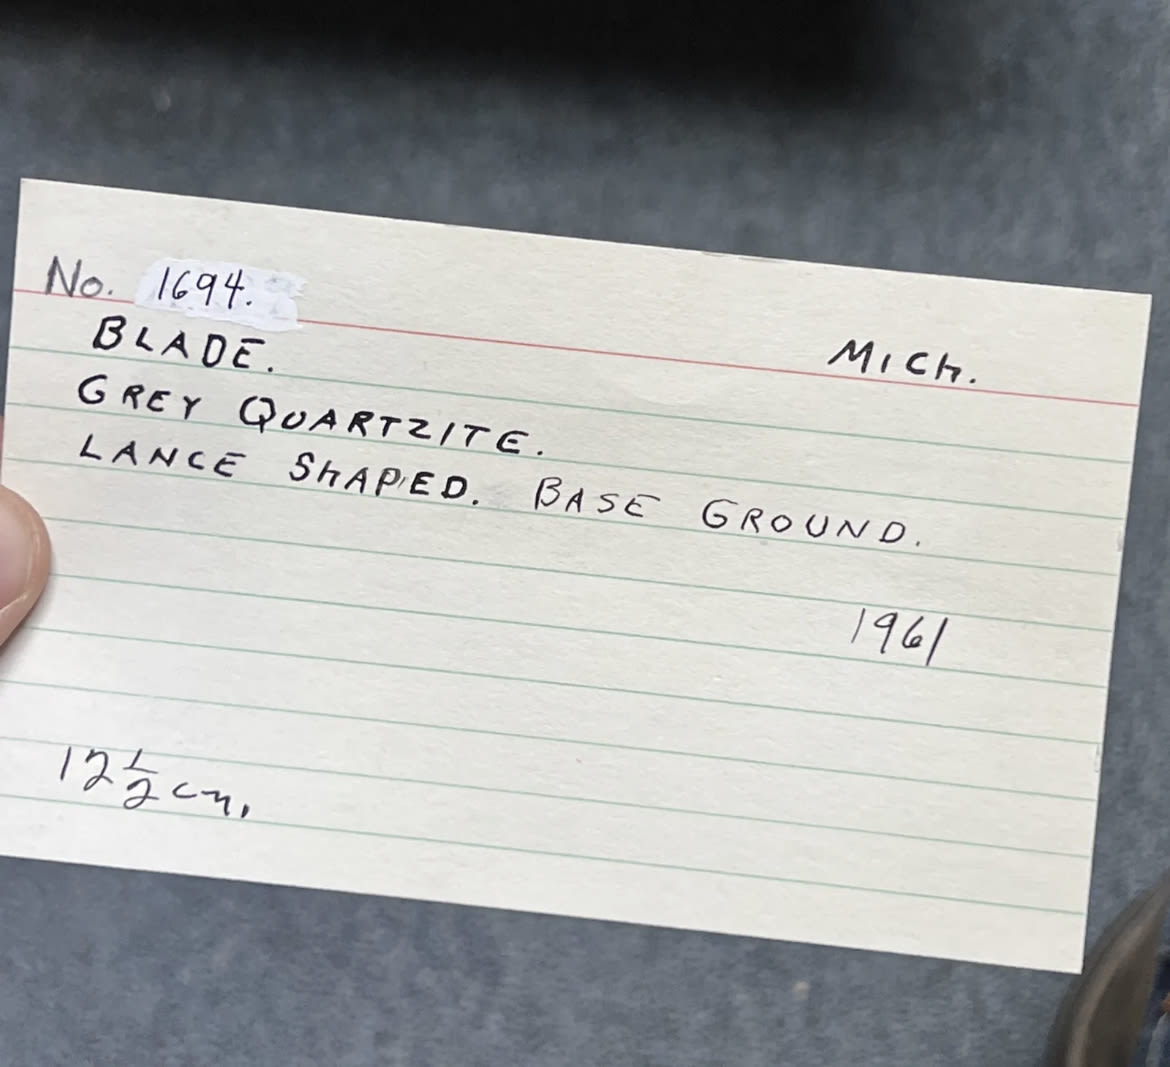 No. 1694.
MICH.
BLADE.
GREY QUARTZITE.
LANCE SHAPED. BASE GROUND.
1961
12 1/2 cm.